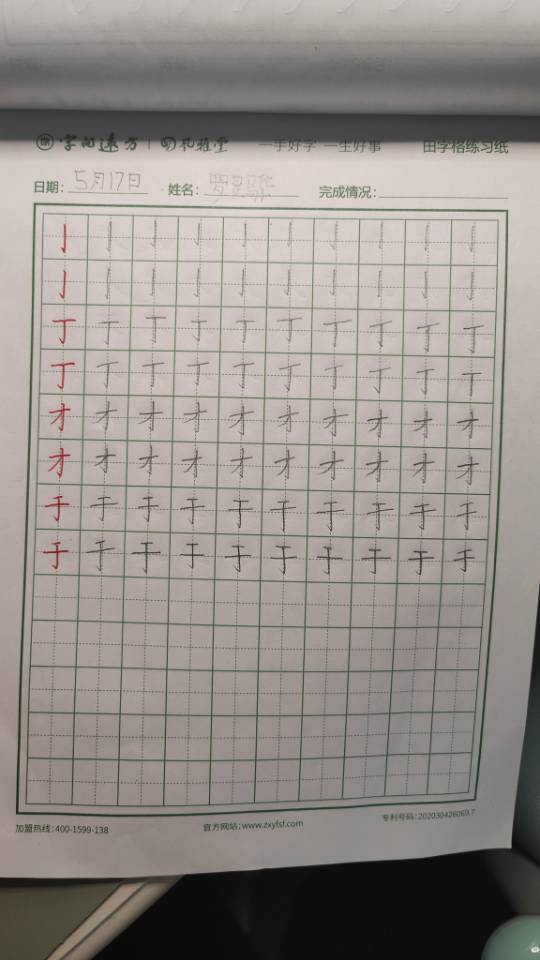 字向远方 | 孔雅堂 一手好字 一生好事 田字格练习纸
日期: 5月17日 姓名: 完成情况:
亅 亅 亅 亅 亅 亅 亅 亅 亅 亅
亅 亅 亅 亅 亅 亅 亅 亅 亅 亅
丁 丁 丁 丁 丁 丁 丁 丁 丁 丁
丁 丁 丁 丁 丁 丁 丁 丁 丁 丁
才 才 才 才 才 才 才 才 才 才
才 才 才 才 才 才 才 才 才 才
于 于 于 于 于 于 于 于 于 于
于 于 于 于 于 于 于 于 于 于
加盟热线:400-1599-138 官方网站:www.zxyfsf.com 专利号码:202030426069.7